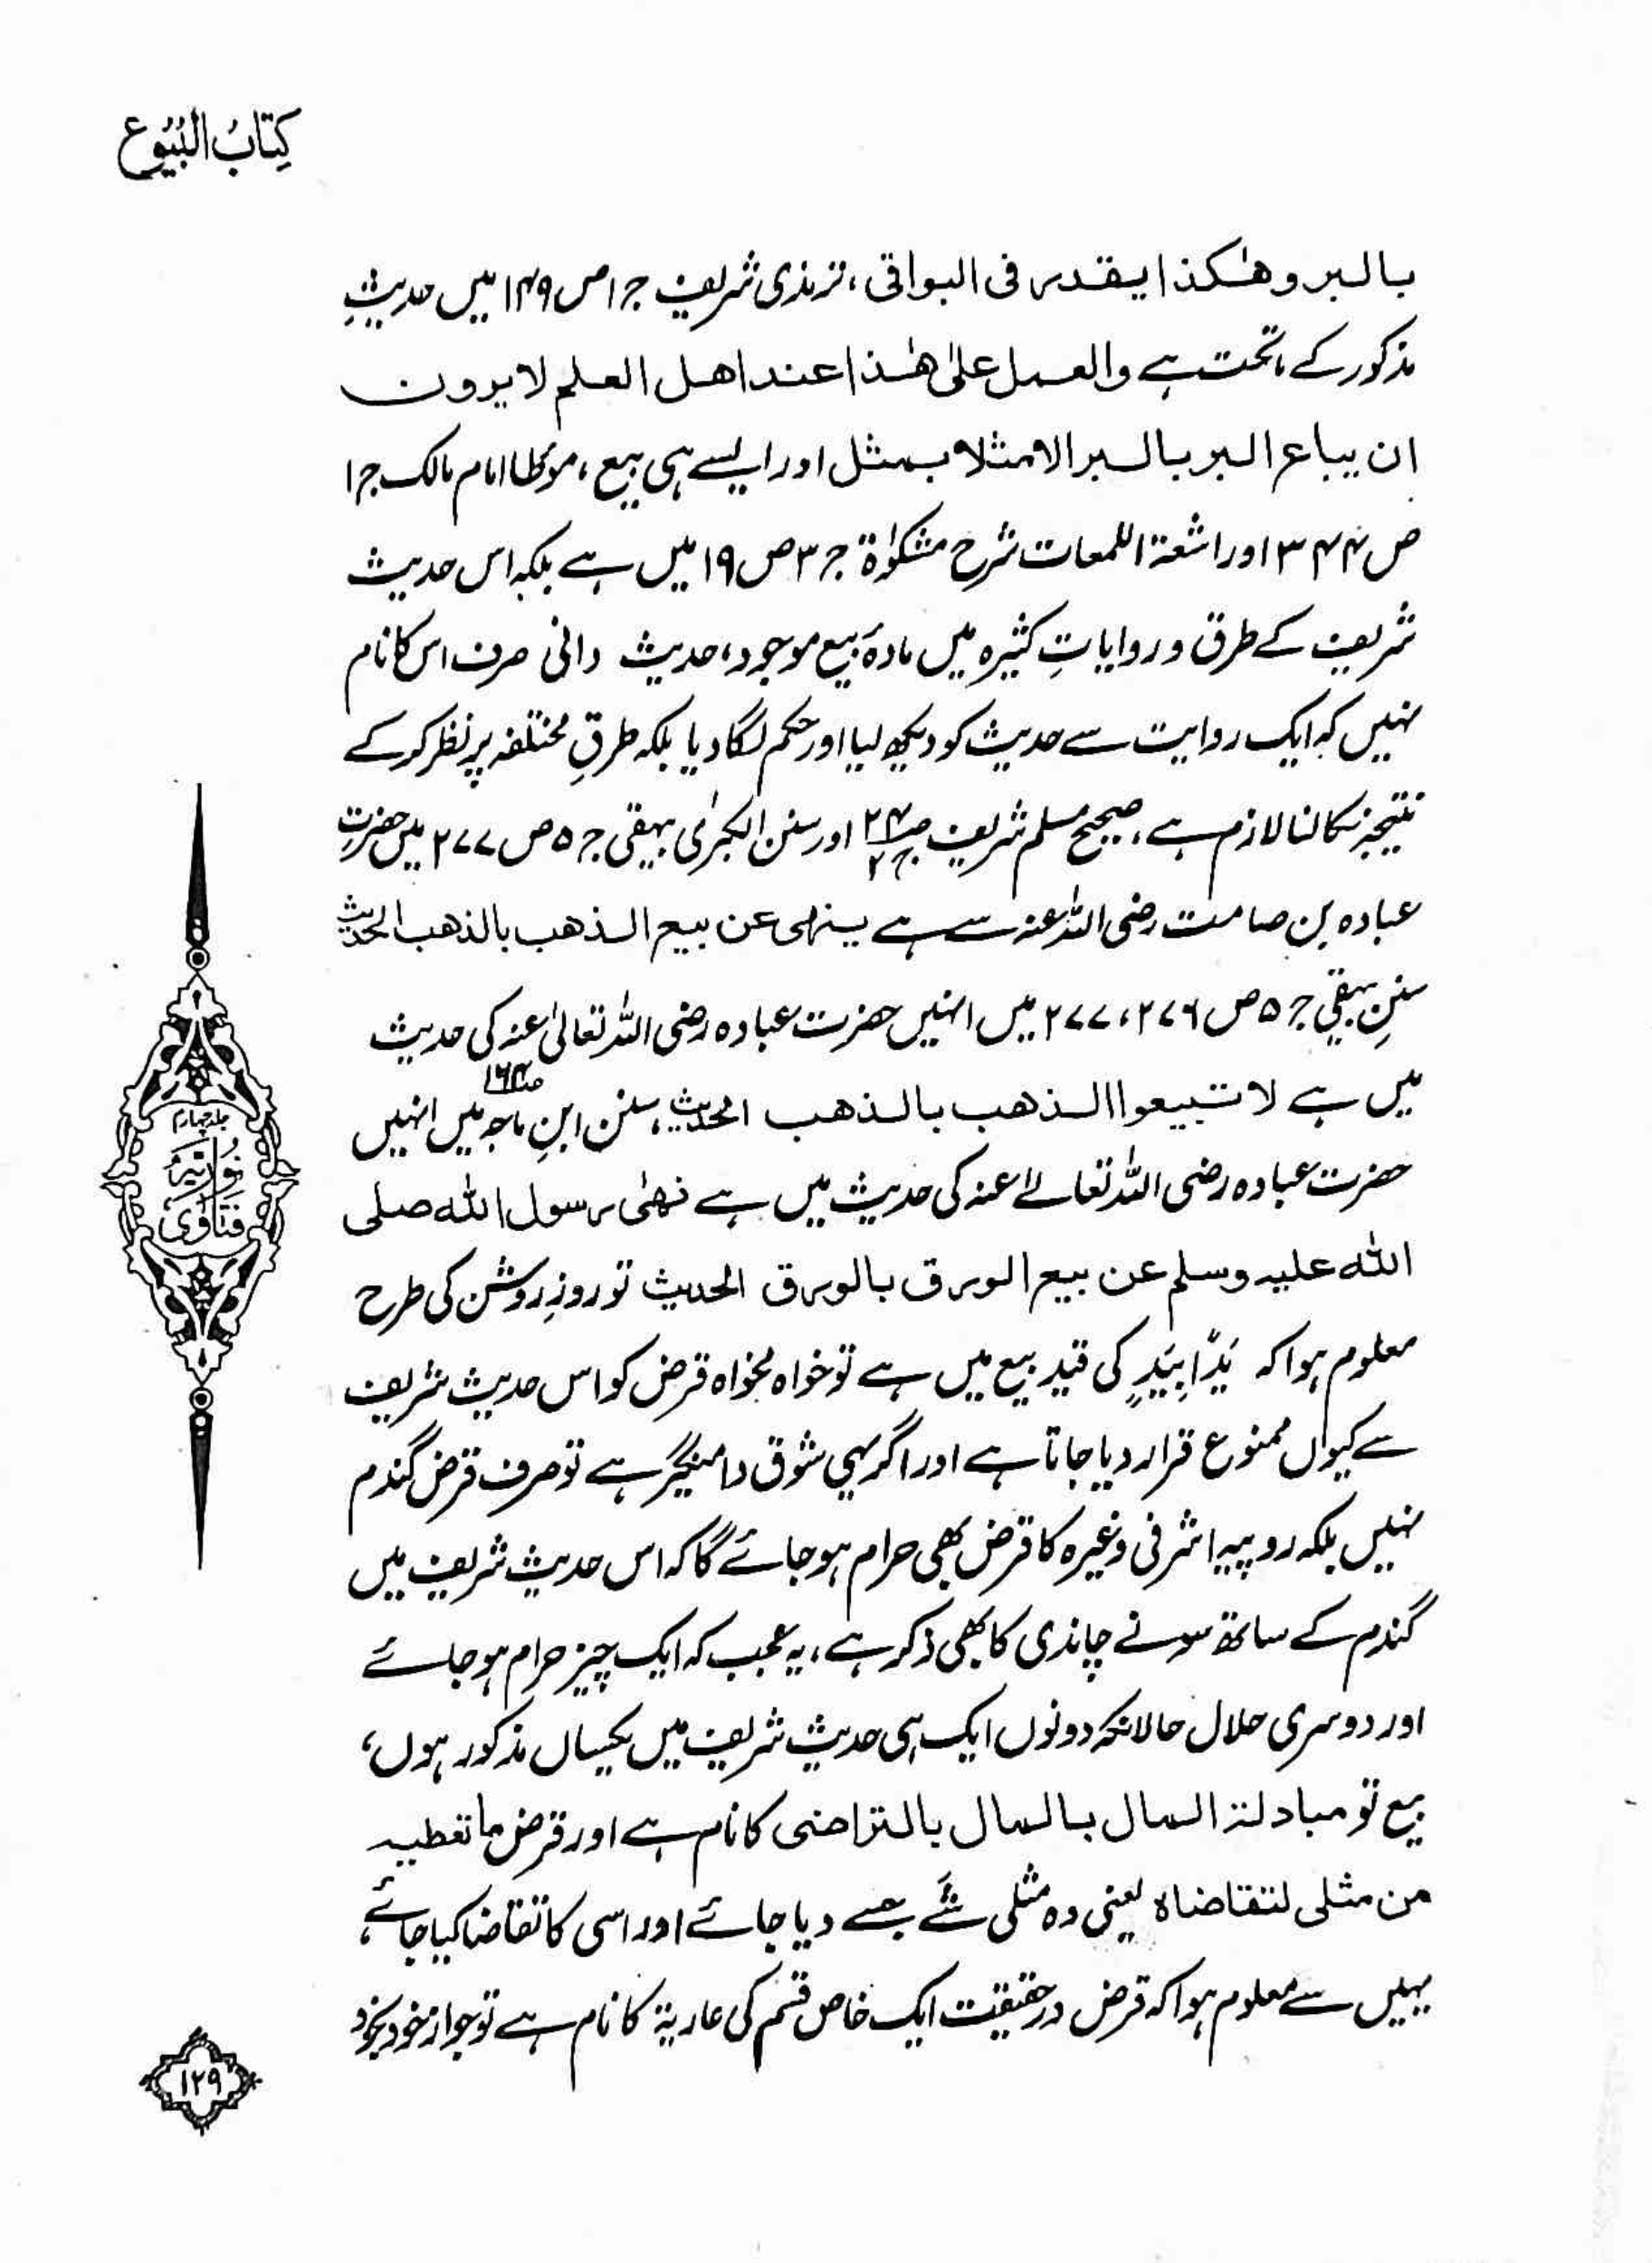 کِتَابُ الْبُیُوْع
بالبر وھٰکذا یقدر فی البواقی، ترمذی شریف ج ۱ ص ۱۴۹ میں حدیثِ
مذکور کے ماتحت ہے والعمل علیٰ ھٰذا عند اھل العلم لا یرون
ان یباع البر بالبر الا مثلا بمثل اور ایسے ہی بیع، مؤطا امام مالک ج ۱
ص ۳۴۴ اور اشعۃ اللمعات شرح مشکوٰۃ ج ۳ ص ۱۹ میں ہے بلکہ اس حدیث
شریف کے طرق و روایاتِ کثیرہ میں مادۂ بیع موجود، حدیث دانی صرف اس کا نام
نہیں کہ ایک روایت سے حدیث کو دیکھ لیا اور حکم لگا دیا بلکہ طرقِ مختلفہ پر نظر کر کے
نتیجہ نکالنا لازم ہے، صحیح مسلم شریف ص ۲۴ ج ۲ اور سنن الکبرٰی بیہقی ج ۵ ص ۲۷۷ میں حضرتِ
عبادہ بن صامت رضی اللہ عنہ سے ہے ینہٰی عن بیع الذھب بالذھب الحدیث
سننِ بیہقی ج ۵ ص ۲۷۶، ۲۷۷ میں انہیں حضرت عبادہ رضی اللہ تعالیٰ عنہ کی حدیث
میں ہے لا تبیعوا الذھب بالذھب الحدیث، سنن ابنِ ماجہ ص ۱۶۴ میں انہیں
حضرت عبادہ رضی اللہ تعالےٰ عنہ کی حدیث میں ہے نھٰی رسول اللہ صلی
اللہ علیہ وسلم عن بیع الورق بالورق الحدیث تو روزِ روشن کی طرح
معلوم ہوا کہ یَدًا بِیَدٍ کی قید بیع میں ہے تو خواہ مخواہ قرض کو اس حدیث شریف
سے کیوں ممنوع قرار دیا جاتا ہے اور اگر یہی شوق دامنگیر ہے تو صرف قرض گندم
نہیں بلکہ روپیہ اشرفی وغیرہ کا قرض بھی حرام ہو جائے گا کہ اس حدیث شریف میں
گندم کے ساتھ سونے چاندی کا بھی ذکر ہے، یہ عجب کہ ایک چیز حرام ہو جائے
اور دوسری حلال حالانکہ دونوں ایک ہی حدیث شریف میں یکساں مذکور ہوں،
بیع تو مبادلۃ المال بالمال بالتراضی کا نام ہے اور قرض ما تعطیہ
من مثلی لتتقاضاہ یعنی وہ مثلی شَے جسے دیا جائے اور اسی کا تقاضا کیا جائے،
یہیں سے معلوم ہوا کہ قرض درحقیقت ایک خاص قسم کی عاریۃ کا نام ہے تو جواز خود بخود
جلد چہارم
نُوْرِیَّہ
فَتَاوٰی
۱۲۹